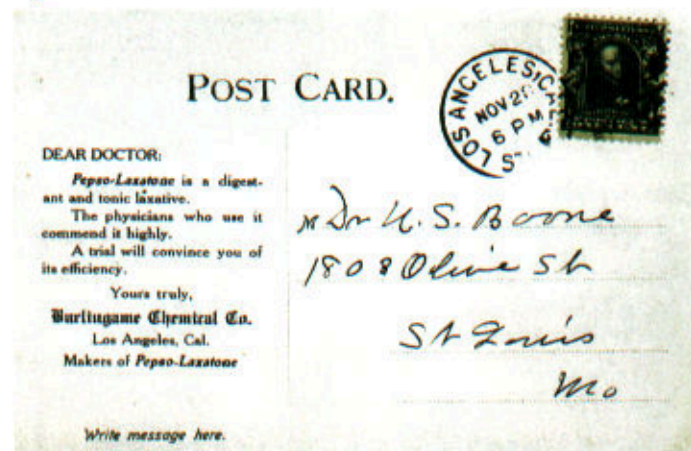 POST CARD.
LOS ANGELES, CAL.
NOV 2
6 PM
DEAR DOCTOR:
Pepso-Laxatone is a digest-
ant and tonic laxative.
The physicians who use it
commend it highly.
A trial will convince you of
its efficiency.
Yours truly,
Burlingame Chemical Co.
Los Angeles, Cal.
Makers of Pepso-Laxatone
Write message here.
Dr U.S. Boone
1808 Olive St
St Louis
Mo